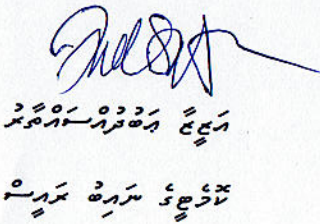 ޢަޒީޒާ ޢަބުދުއްސައްތާރު
ކޮމެޓީގެ ނައިބު ރައީސް